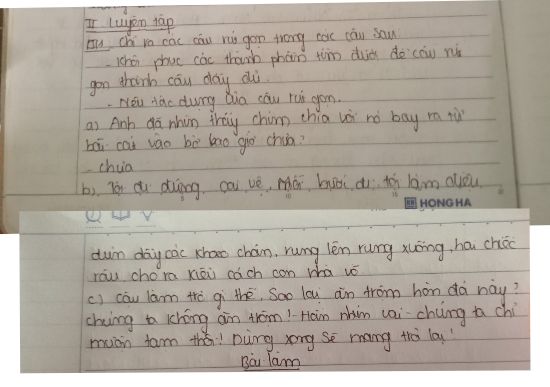 II Luyện tập
Bài 1. Chỉ ra các câu rút gọn trong các câu sau
- Khôi phục các thành phần
gọn thành câu đầy đủ.
- Nêu tác dụng của câu rút gọn.
a) Anh đã nhìn thấy chim chìa vôi nó bay ra từ
bãi cát vào bờ bao giờ chưa?
- chưa
b) Tôi đi đứng oai vệ. Mỗi bước đi, tôi làm điệu
HONG HA
dún dẩy các khoeo chân, rung lên rung xuống, hai chiếc
râu cho ra kiểu cách con nhà võ
c) Cậu làm trò gì thế. Sao lại ăn trộm hòn đá này?
chúng ta không ăn trộm! - Hoàn nhún vai - chúng ta chỉ
muốn tạm thôi! Dùng xong sẽ mang trả lại!
Bài làm